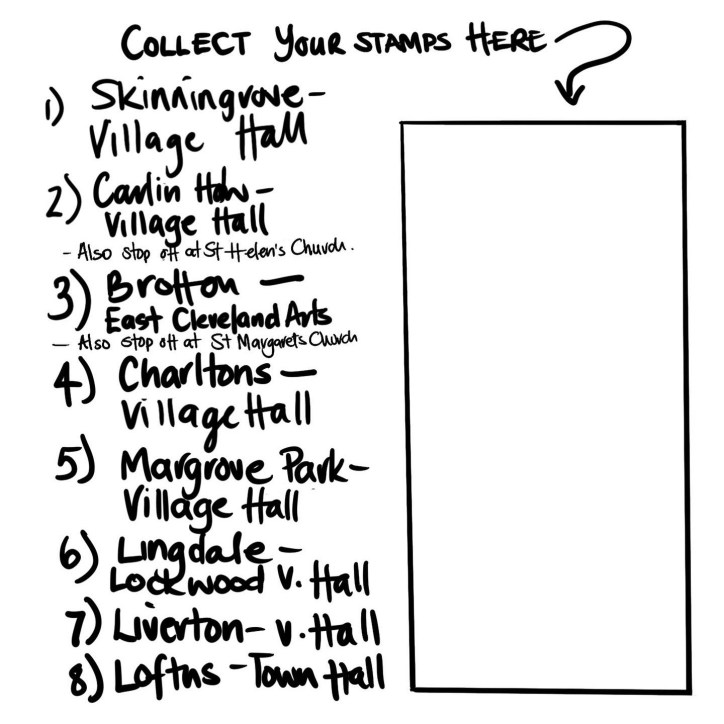 COLLECT YOUR STAMPS HERE
1) Skinningrove-
Village Hall
2) Carlin How-
Village Hall
- Also stop off at St Helen's Church.
3) Brotton -
East Cleveland Arts
- Also stop off at St Margarets Church
4) Charltons -
Village Hall
5) Margrove Park-
Village Hall
6) Lingdale -
Lockwood V. Hall
7) Liverton- V. Hall
8) Loftus - Town Hall